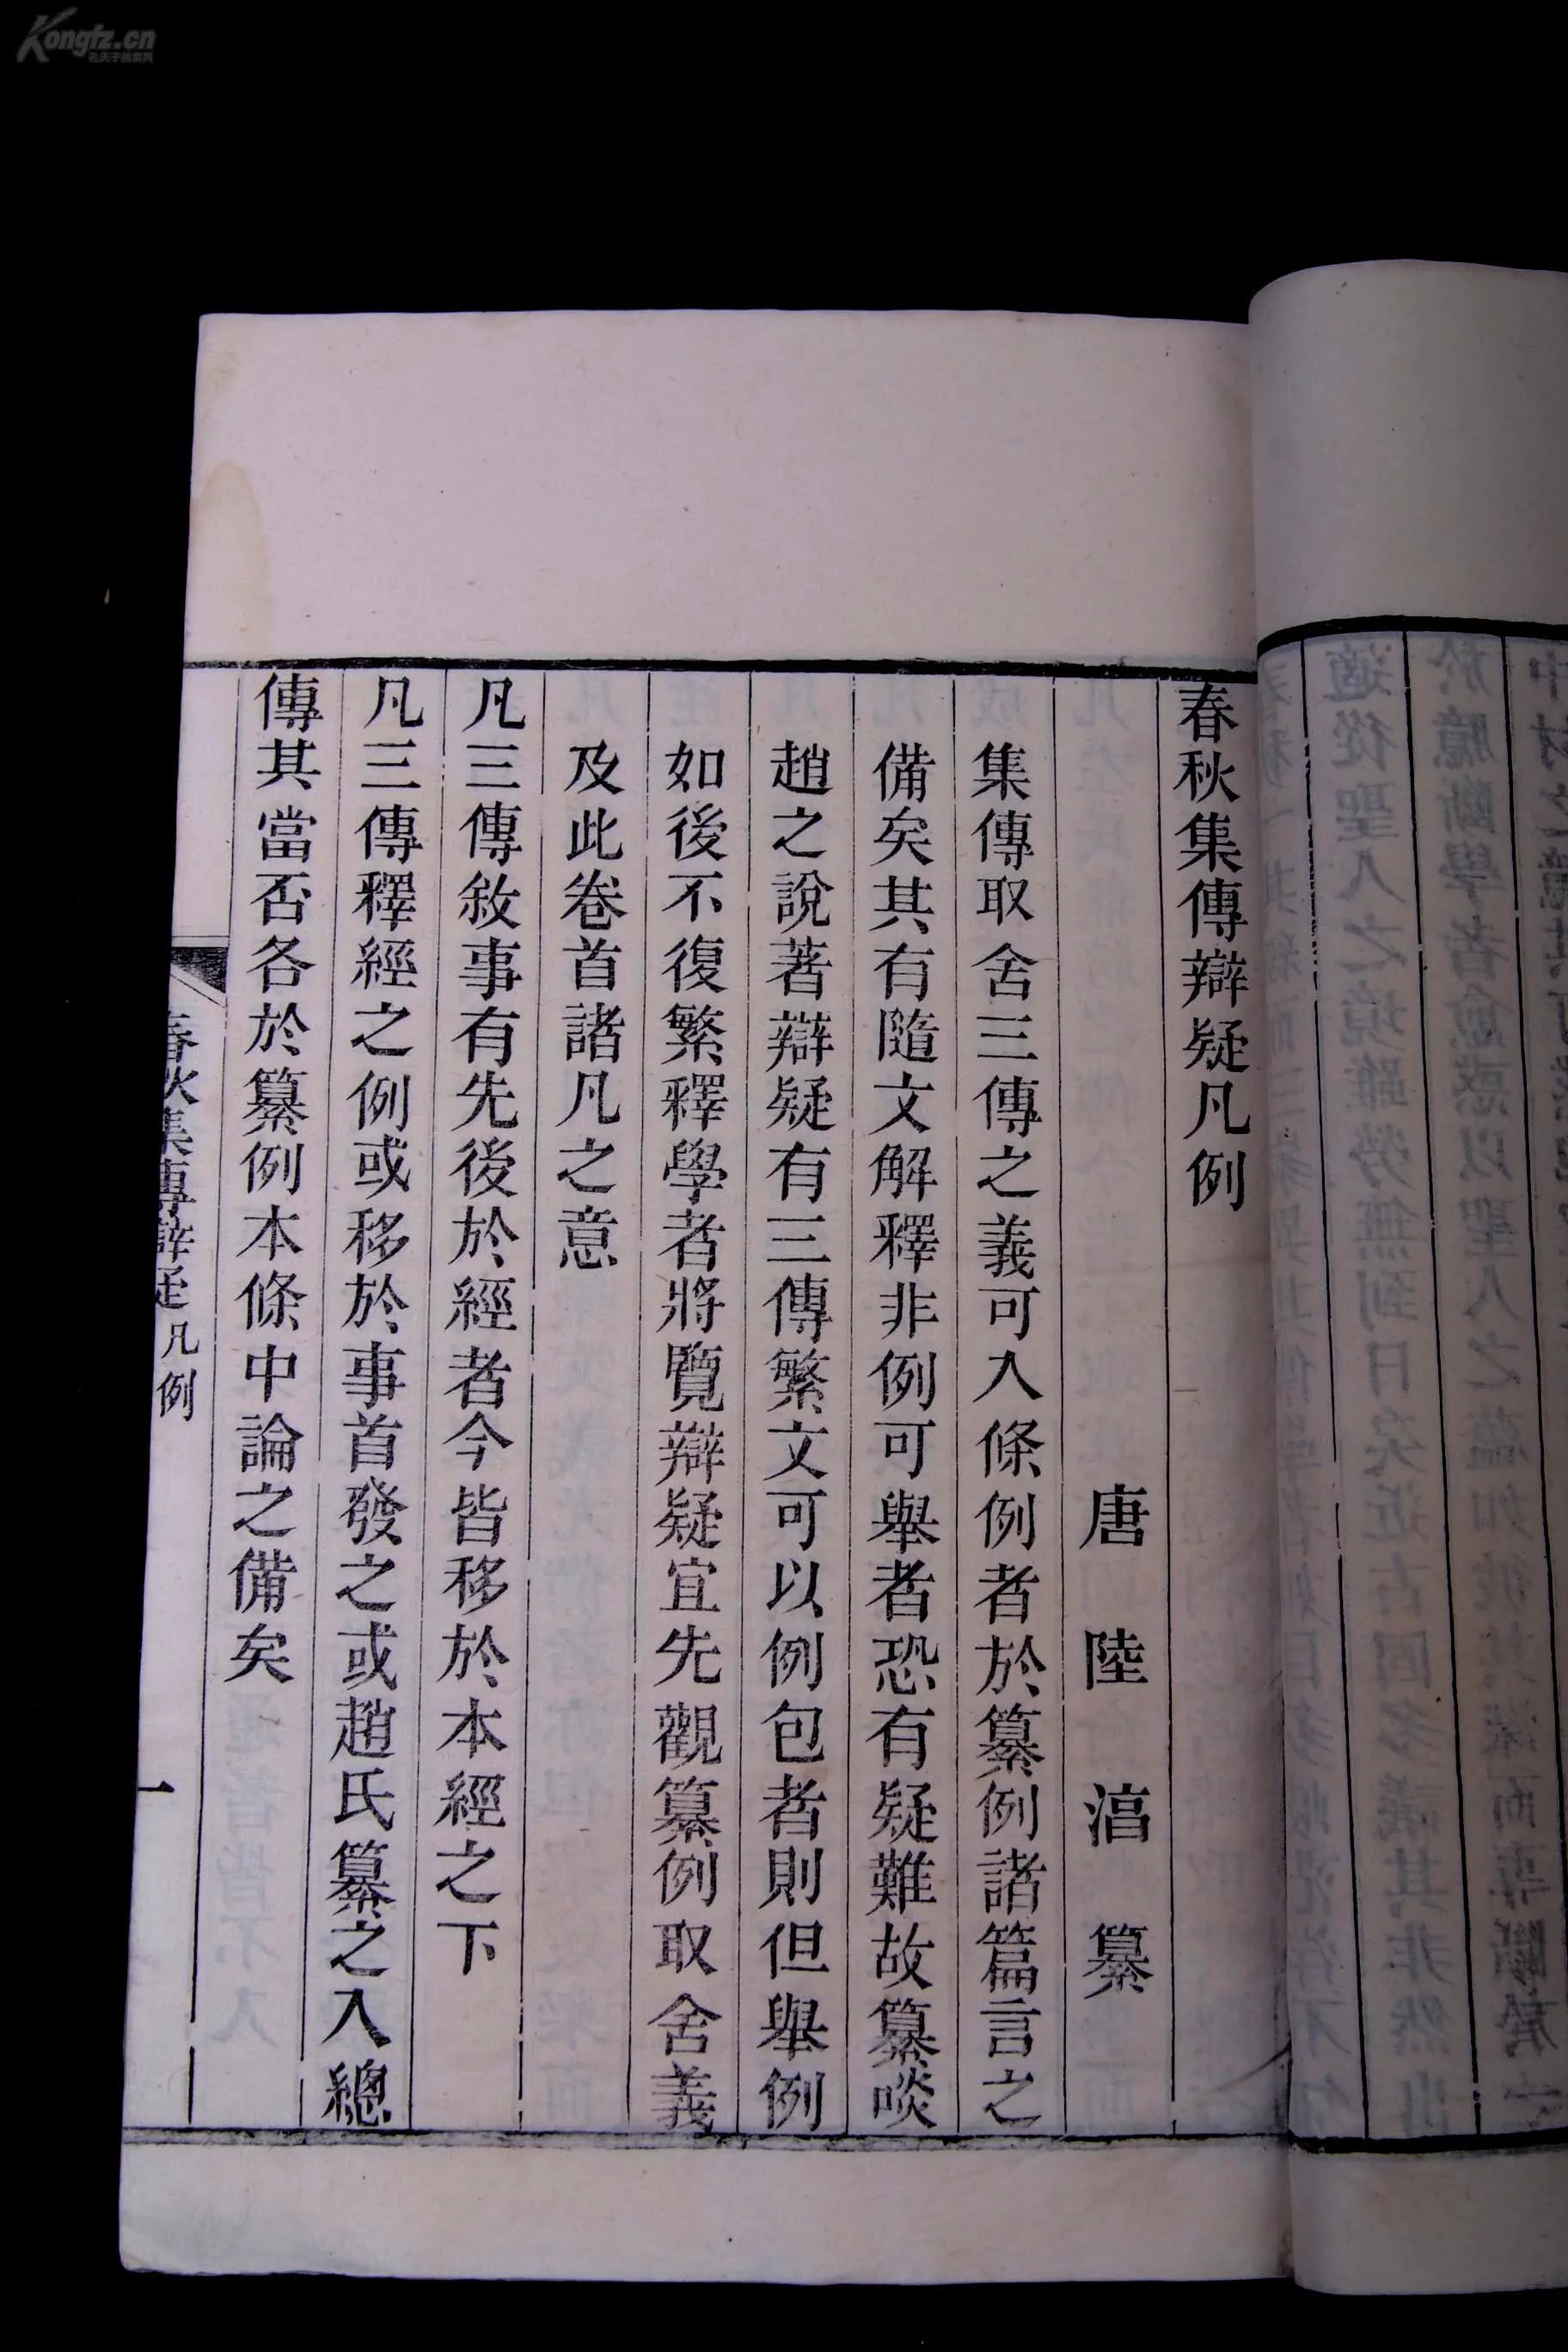 春秋集傳辯疑凡例
唐陸淳纂
集傳取舍三傳之義可入條例者於纂例諸篇言之
備矣其有隨文解釋非例可舉者恐有疑難故纂啖
趙之說著辯疑有三傳繁文可以例包者則但舉例
如後不復繁釋學者將覽辯疑宜先觀纂例取舍義
及此卷首諸凡之意
凡三傳敘事有先後於經者今皆移於本經之下
凡三傳釋經之例或移於事首發之或趙氏纂之入總
傳其當否各於纂例本條中論之備矣
春秋集傳辯疑凡例
一
Kongfz.cn